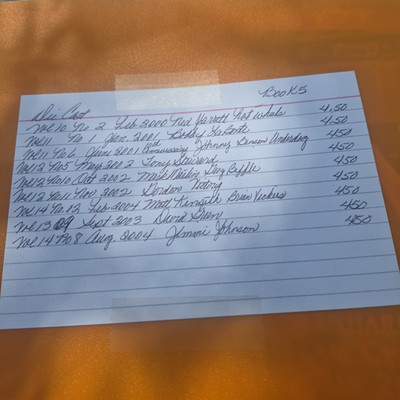 Books
Die Cast
Vol 10 No. 2 Feb 2000 Ned Jarrett Hot Wheels 4.50
Vol 11 No 1 Jan. 2001 Bobby LaBonte 4.50
Vol 11 No 6 June 2001 Anniversary Johnny Benson Underdog 4.50
Vol 12 No 5 May 2002 Tony Stewart 450
Vol 12 No 10 Oct 2002 Mike 450
Vol 12 No 11 Nov 2002 Gordon 450
Vol 14 No. 12 Feb 2004 Matt Kenseth Brian Vickers 450
Vol 13 09 Sept 2003 David Green 450
Vol 14 No 8 Aug. 2004 Jimmie Johnson 450